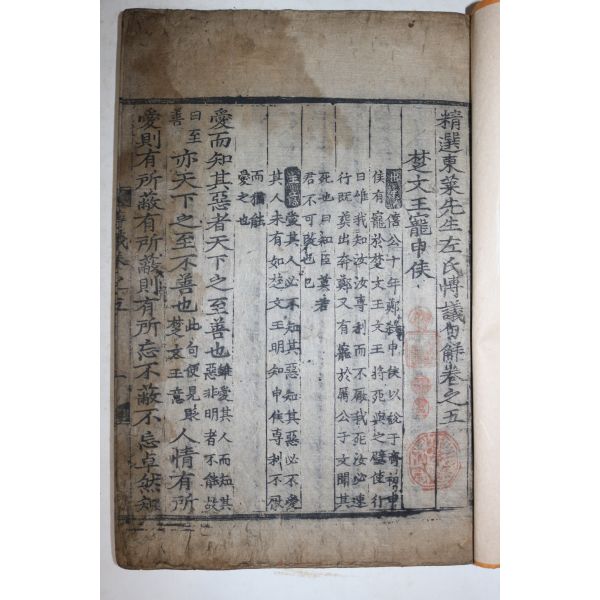 精選東萊先生左氏博議句解卷之五
楚文王寵申侯
僖公十年鄭殺申侯以說于齊初申
侯有寵於楚文王文王將死與之璧使行
曰唯我知汝汝專利而不厭我死汝必速
行旣葬出奔鄭又有寵於厲公子文聞其
死也曰知臣莫若
君不可改也已
主意 愛其人必不知其惡知其惡必不愛
其人未有如楚文王明知申侯專利不厭
而猶能
愛之也
愛而知其惡者天下之至善也 雖愛其人而知其
惡非明者不能故
曰至
善 亦天下之至不善也 此句便見貶
楚文王意 人情有所
愛則有所蔽有所蔽則有所忘不蔽不忘卓然知